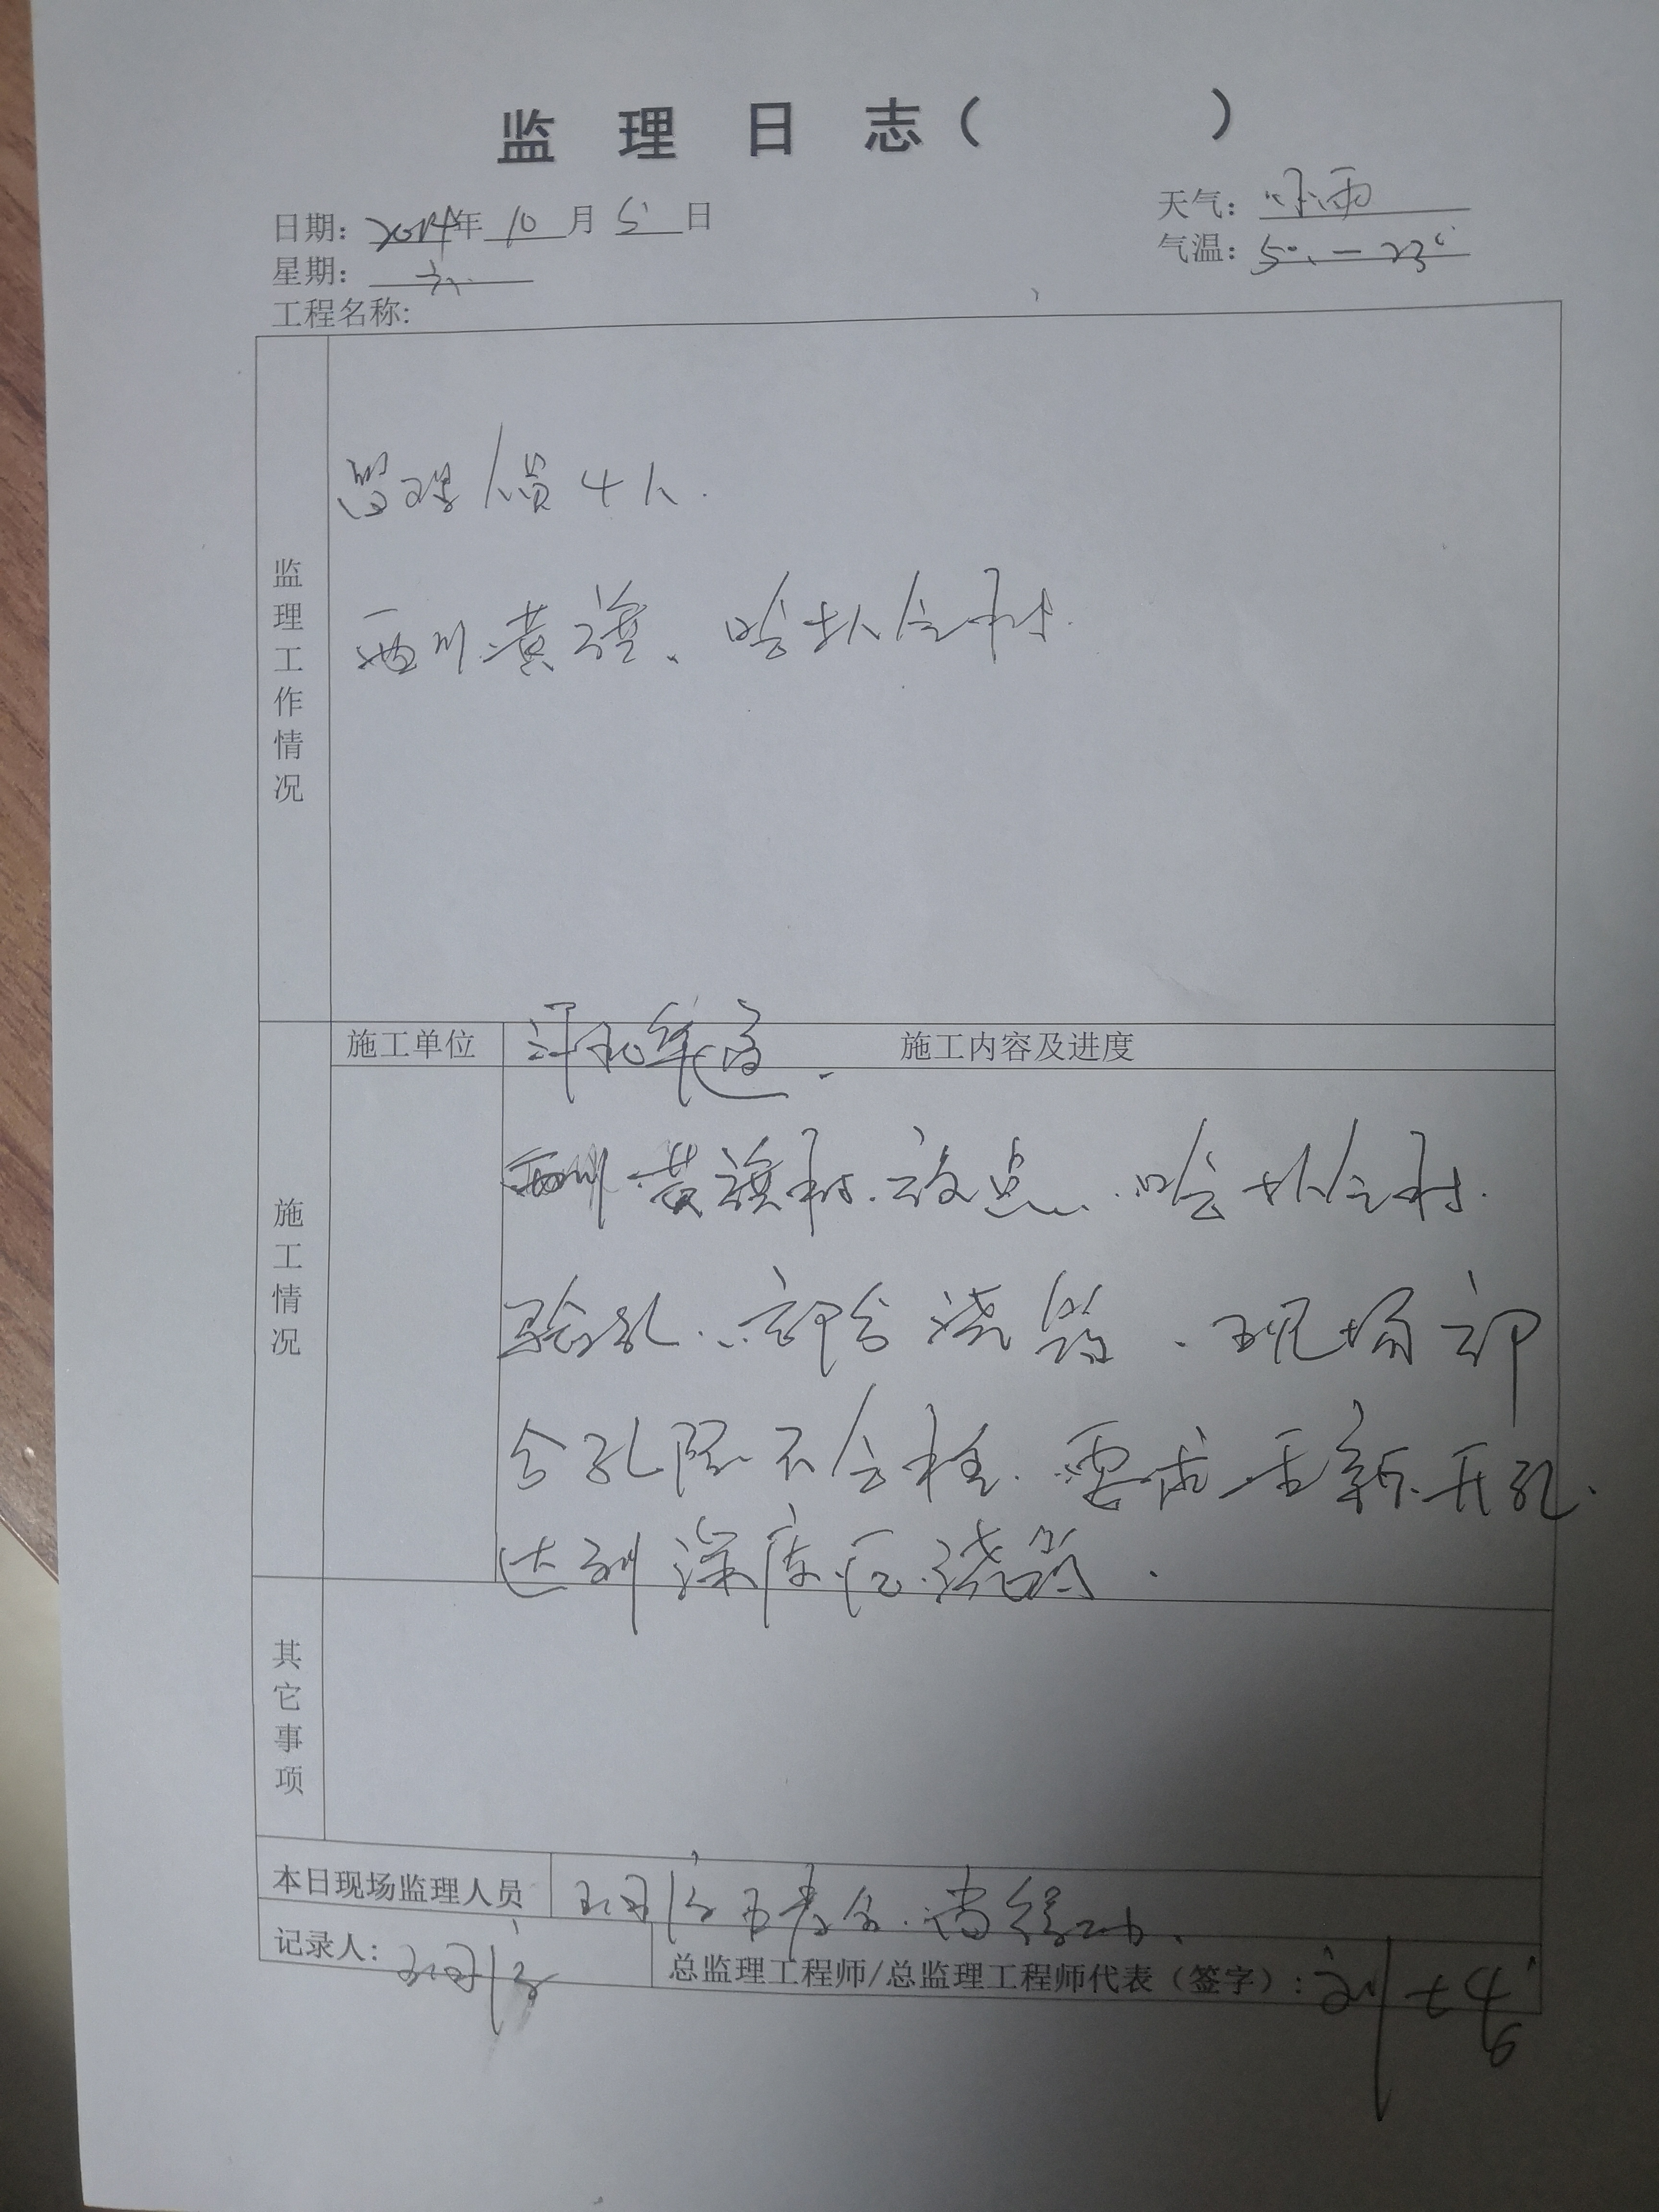 监 理 日 志（ ）
日期：2024年 10 月 5 日
天气：
星期：六
气温：5° — 23°
工程名称:
监理工作情况
管理人员4人.
西川黄旗、哈扒仑村.
施工情况
施工单位
施工内容及进度
西川黄旗村.放点.哈扒仑村.
验孔..部分浇筑.现场部
分孔深不合格.要求重新开孔.
达到深度后浇筑.
其它事项
本日现场监理人员
记录人：
总监理工程师/总监理工程师代表（签字）：